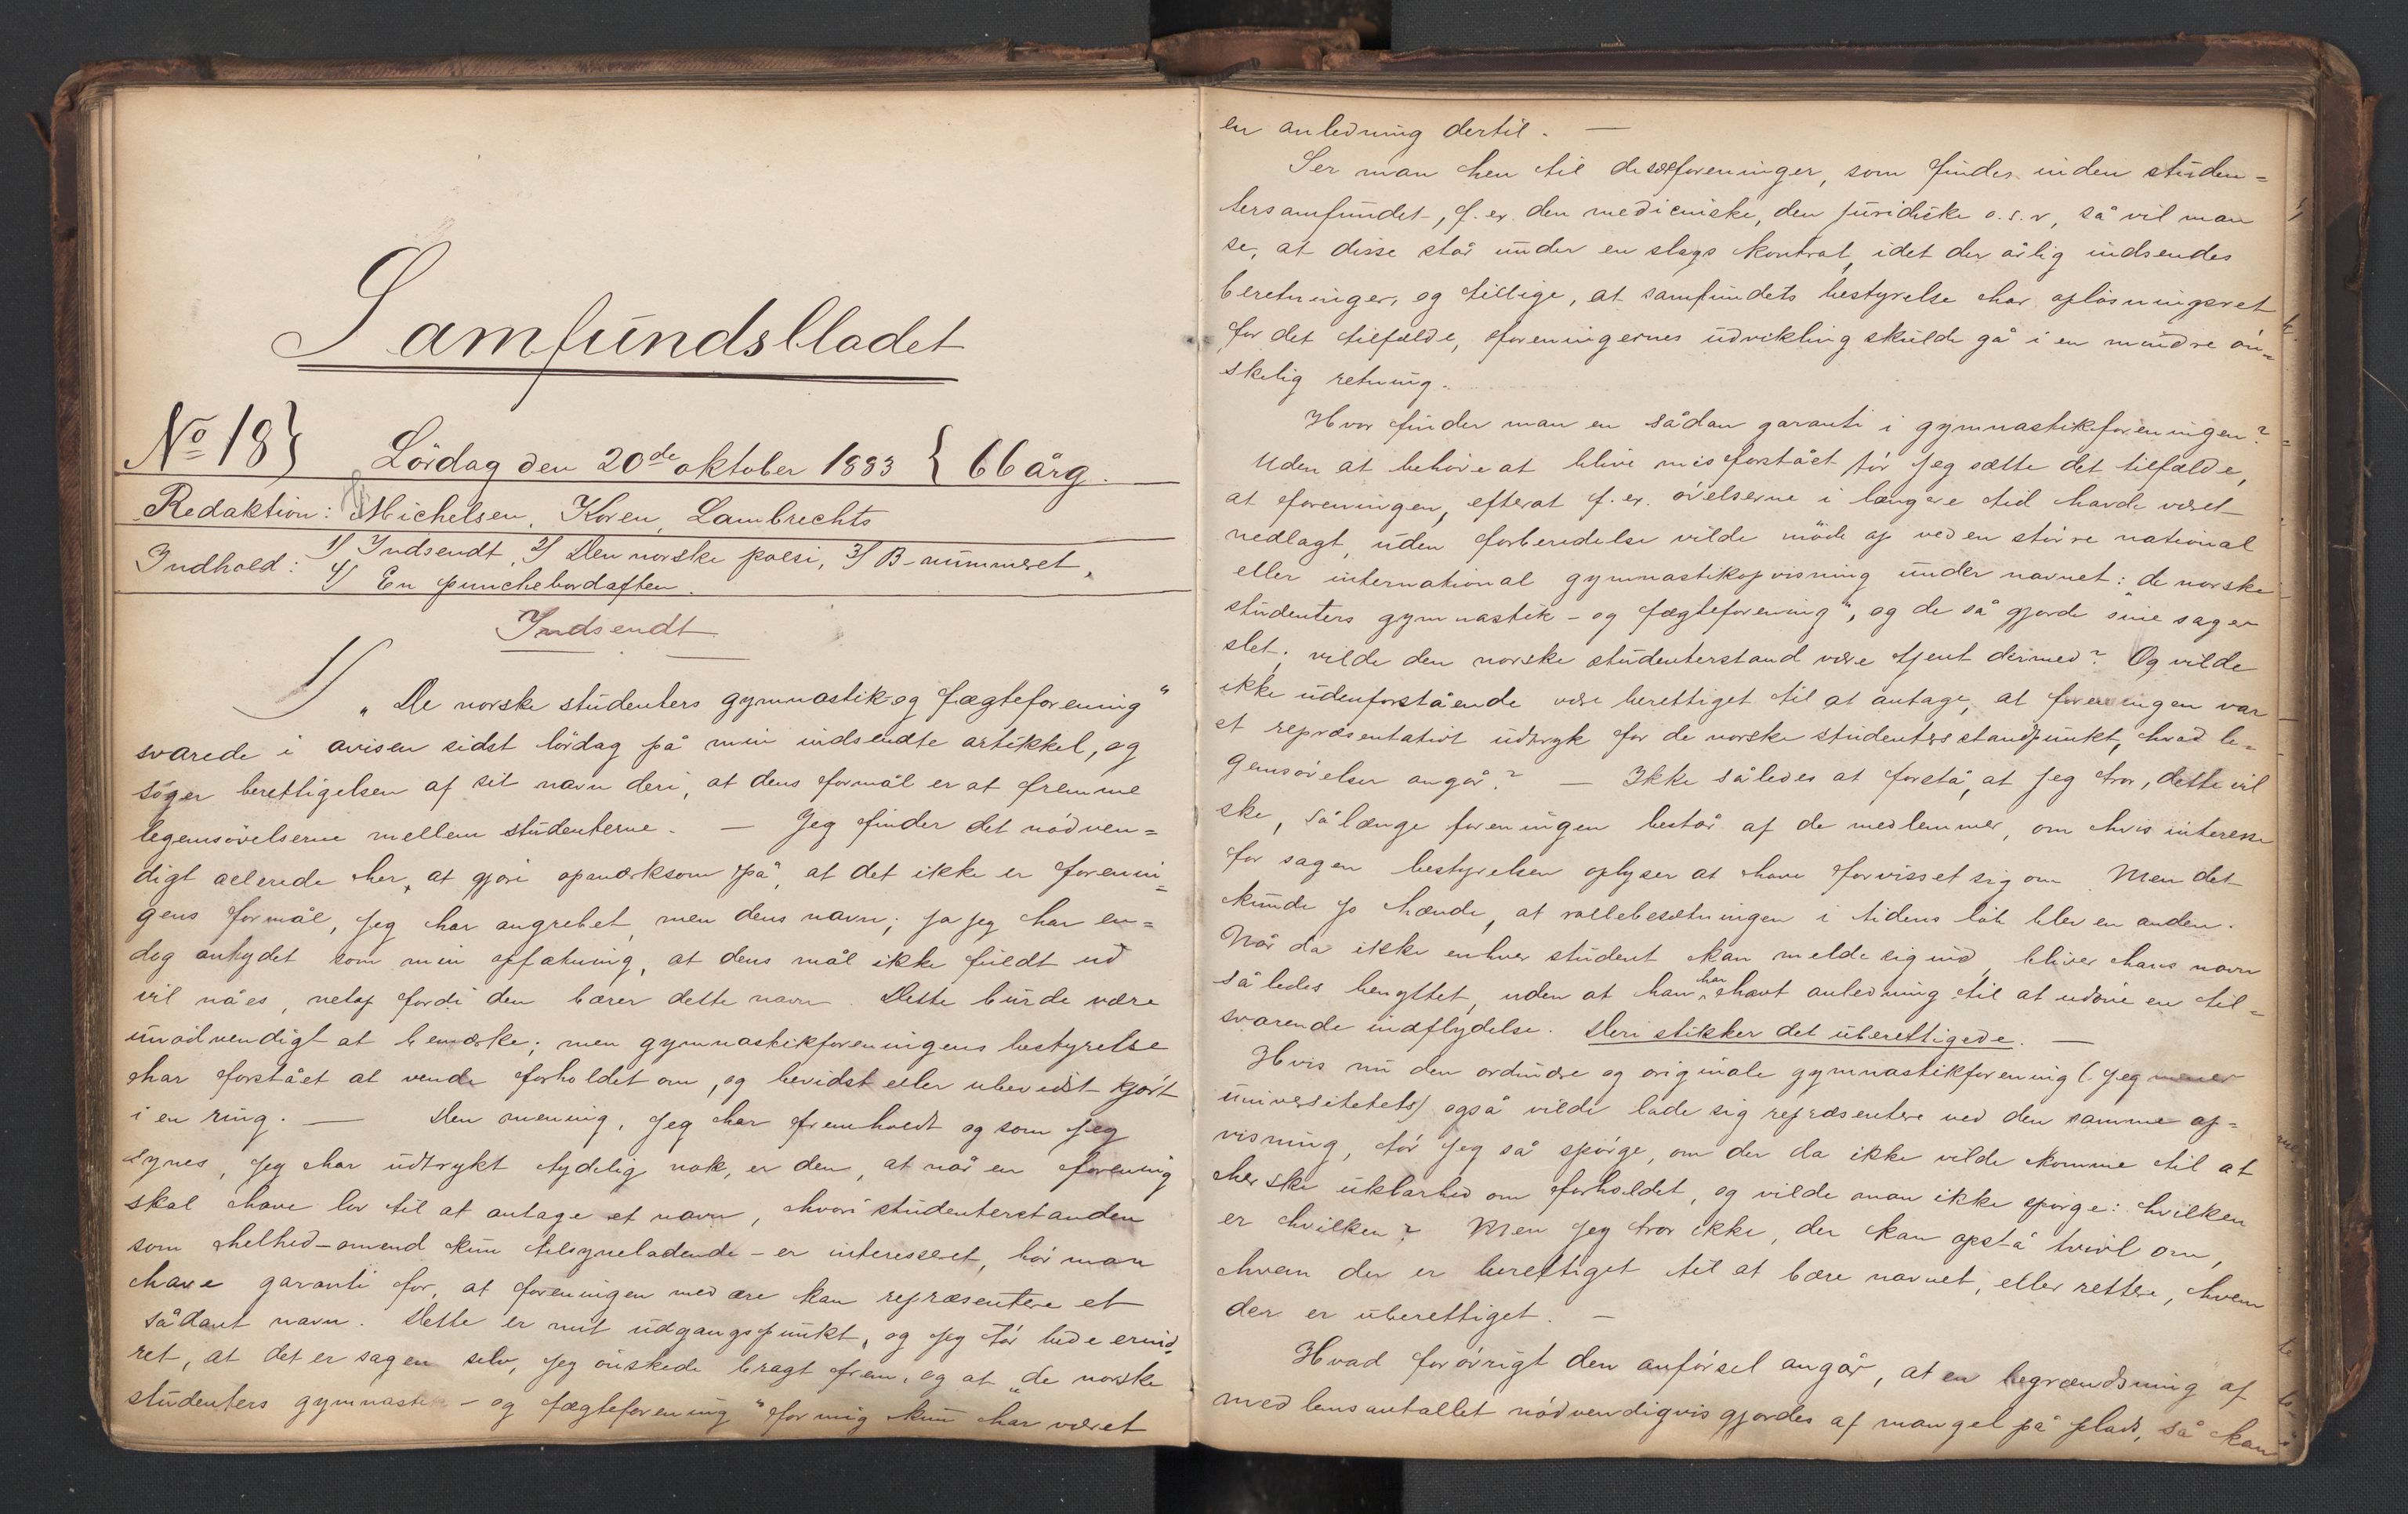 Samfundsbladet
No 18} Lördag den 20de oktober 1883 { 66 årg.
Redaktion: Michelsen, Koren, Lambrechts
Indhold: 1/ Indsendt, 2/ Den norske poesi, 3/ B-nummeret,
4/ En punchebordaften.
Indsendt
1/ „De norske studenters gymnastik- og fægteforening“
svarede i avisen sidst lördag på min indsendte artikkel, og
söger berettigelsen af sit navn deri, at dens formål er at fremme
legemsövelserne mellem studenterne. — Jeg finder det nödven=
digt allerede her, at gjöre opmærksom på, at det ikke er forenin=
gens formål, jeg har angrebet, men dens navn; ja jeg har en=
dog antydet som min opfatning, at dens mål ikke fuldt ud
vil nåes, netop fordi den bærer dette navn. Dette burde være
unödvendigt at bemærke; men gymnastikforeningens bestyrelse
har forstået at vende forholdet om, og bevidst eller ubevidst kjört
i en ring. — Den mening, jeg har fremholdt og som jeg
synes, jeg har udtrykt tydelig nok, er den, at når en forening
skal have lov til at antage et navn, hvori studenterstanden
som helhed – omend kun tilsyneladende – er interesseret, bör man
have garanti for, at foreningen med ære kan repræsentere et
sådant navn. Dette er mit udgangspunkt, og jeg tör bede erind=
ret, at det er sagen selv, jeg önskede bragt frem, og at „de norske
studenters gymnastik- og fægteforening“ for mig kun har været
en anledning dertil. —
Ser man hen til de særforeninger, som findes inden studen=
tersamfundet, f. ex. den medicinske, den juridiske o.s.v, så vil man
se, at disse står under en slags kontrol, idet der årlig indsendes
beretninger, og tillige, at samfundets bestyrelse har oplösningsret
for det tilfælde, foreningernes udvikling skulde gå i en mindre ön=
skelig retning.
Hvor finder man en sådan garanti i gymnastikforeningen?
Uden at behöve at blive misforstået tör jeg sætte det tilfælde,
at foreningen, efterat f. ex. övelserne i længere tid havde været
nedlagt, uden forberedelse vilde möde op ved en större national
eller international gymnastikopvisning under navnet: „de norske
studenters gymnastik- og fægteforening“, og de så gjorde sine sager
slet; vilde den norske studenterstand være tjent dermed? Og vilde
ikke udenforstående være berettiget til at antage, at foreningen var
et repræsentativt udtryk for de norske studenters standpunkt, hvad le=
gemsövelser angår? — Ikke således at forstå, at jeg tror, dette vil
ske, sålænge foreningen består af de medlemmer, om hvis interesse
for sagen bestyrelsen oplyser at have forvisset sig om. Men det
kunde jo hænde, at rollebesætningen i tidens löb blev en anden.
Når da ikke enhver student kan melde sig ind, bliver hans navn
således benyttet, uden at han har havt anledning til at udöve en til=
svarende indflydelse. Deri stikker det uberettigede. —
Hvis nu den ordinære og originale gymnastikforening (jeg mener
universitetets) også vilde lade sig repræsentere ved den samme op=
visning, tör jeg så spörge, om der da ikke vilde komme til at
herske uklarhed om forholdet, og vilde man ikke spörge: hvilken
er hvilken? Men jeg tror ikke, der kan opstå tvivl om,
hvem der er berettiget til at bære navnet, eller rettere, hvem
der er uberettiget. —
Hvad forövrigt den anförsel angår, at en begrændsning af
medlemsantallet nödvendigvis gjordes af mangel på plads, så kan